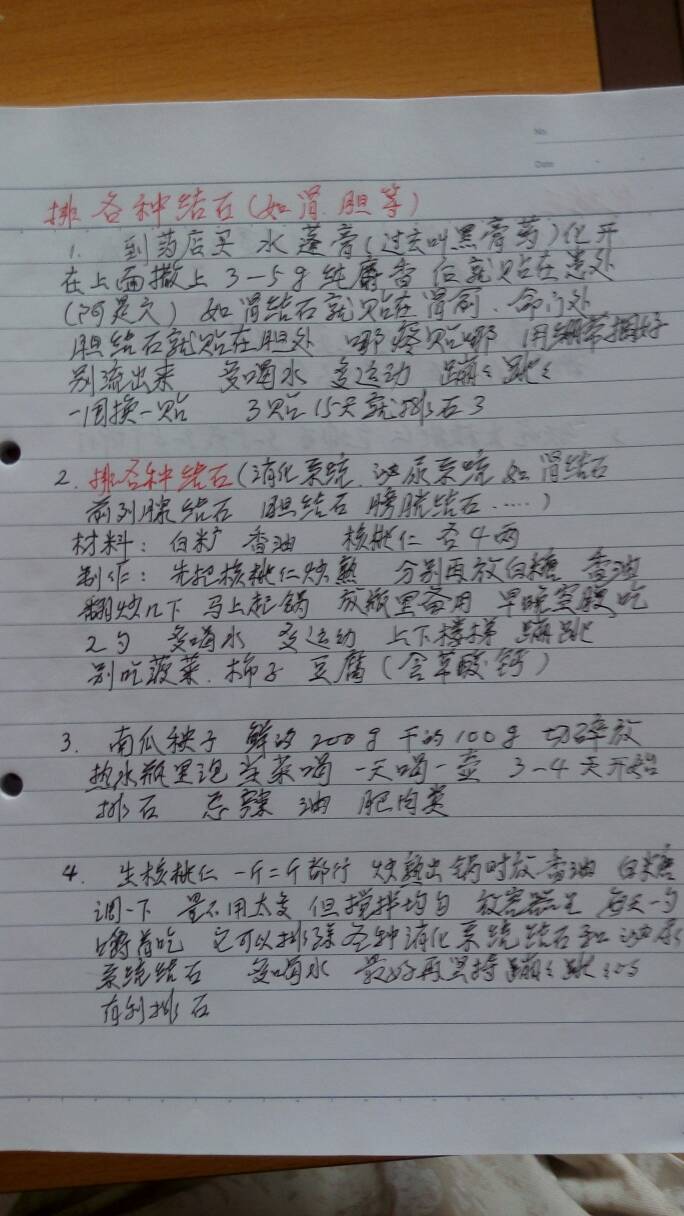 No.
Date
排各种结石(如肾.胆等)
1. 到药店买 水蓬膏(过去叫黑膏药)化开
在上面撒上3-5g纯麝香 后就贴在患处
(阿是穴) 如肾结石就贴在肾前、命门处
胆结石就贴在胆处 哪疼贴哪 用绷带捆好
别流出来 多喝水 多运动 蹦蹦跳跳
一周换一贴 3贴15天就排石了
2. 排各种结石(消化系统.泌尿系统 如肾结石
前列腺结石 胆结石 膀胱结石……)
材料: 白糖 香油 核桃仁 各4两
制作: 先把核桃仁炒熟 分别再放白糖 香油
翻炒几下 马上起锅 放瓶里备用 早晚空腹吃
2勺 多喝水 多运动 上下楼梯 蹦跳
别吃菠菜.柿子 豆腐(含草酸.钙)
3. 南瓜秧子 鲜的200g 干的100g 切碎放
热水瓶里泡 当茶喝 一天喝一壶 3-4天开始
排石 忌辣 油 肥肉类
4. 生核桃仁 一斤二斤都行 炒熟出锅时放香油 白糖
调一下 量不用太多 但搅拌均匀 放容器里 每天一勺
嚼着吃 它可以排除各种消化系统结石和泌尿
系统结石 多喝水 最好再坚持蹦蹦跳跳的
有利排石